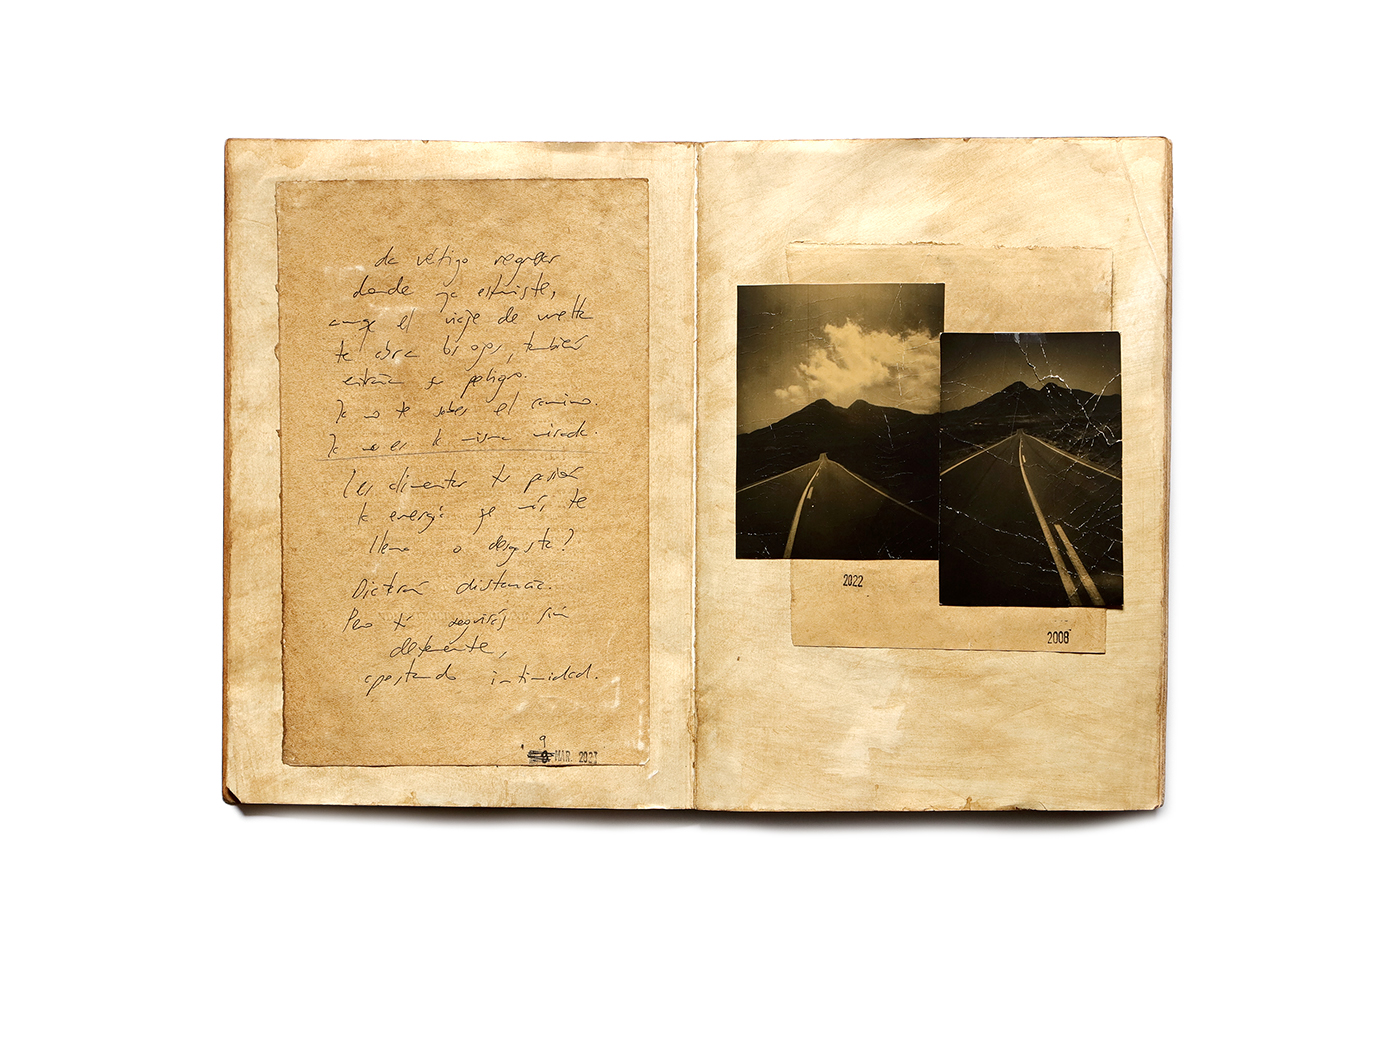 da vértigo regresar
donde ya estuviste,
aunque el viaje de vuelta
te abra los ojos, también
entraña su peligro.
Ya no te sabes el camino.
Ya no es la misma mirada.
¿Les alimentas tu pasión
la energía que más te
llena o desgasta?
Dictarán distancia.
Pero tú seguirás sin
detenerte,
apostando intimidad.
9
MAR. 2023
2022
2008